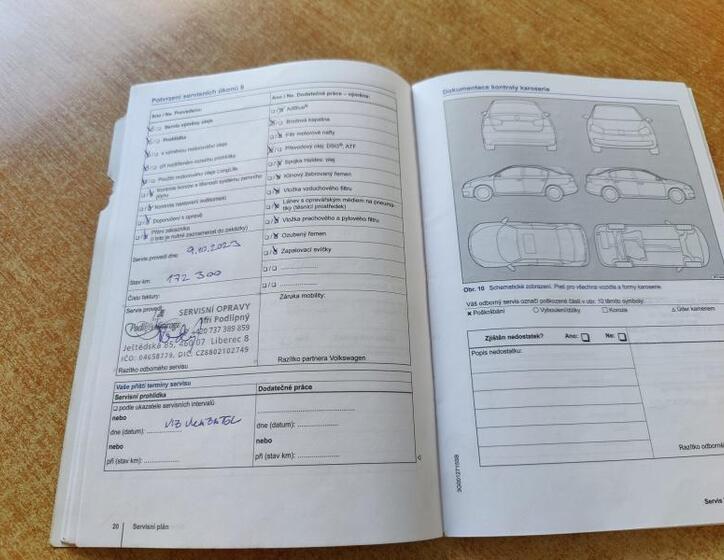 Potvrzení servisních úkonů 8
Ano / Ne Provedeno:
Servis výměny oleje
Prohlídka
s výměnou motorového oleje
při rozšířeném rozsahu prohlídka
Použito motorového oleje LongLife
Kontrola koroze a těsnosti systému zemního plynu
Kontrola nastavení světlometů
Doporučení k opravě
Přání zákazníka
(i toto je nutné zaznamenat do zakázky)
Servis proveď dne: 9.10.2023
Stav km: 172 300
Číslo faktury:
Servis provedl:
SERVISNÍ OPRAVY
Jiří Podlipný
737 389 859
Ještědská 85, 460 07 Liberec 8
IČO: 04658779, DIČ: CZ8802102749
Razítko odborného servisu
Ano / Ne Dodatečné práce – výměna:
AdBlue®
Brzdová kapalina
Filtr motorové nafty
Převodový olej: DSG®, ATF
Spojka Haldex: olej
Klínový žebrovaný řemen
Vložka vzduchového filtru
Láhev s opravářským médiem na pneumatiky (těsnicí prostředek)
Vložka prachového a pylového filtru
Ozubený řemen
Zapalovací svíčky
Záruka mobility:
Razítko partnera Volkswagen
Vaše příští termíny servisu
Servisní prohlídka
podle ukazatele servisních intervalů
nebo
dne (datum): VIZ UKAZATEL
nebo
při (stav km):
Dodatečné práce
dne (datum):
nebo
při (stav km):
20 Servisní plán
Dokumentace kontroly karoserie
Obr. 10 Schematické zobrazení. Platí pro všechna vozidla a formy karoserie.
Váš odborný servis označí poškozené části v obr. 10 těmito symboly:
× Poškrábání ○ Vyboulení/důlky □ Koroze △ Úder kamenem
Zjištěn nedostatek? Ano: Ne:
Popis nedostatku:
Razítko odborné
3G0012771SSB
Servis